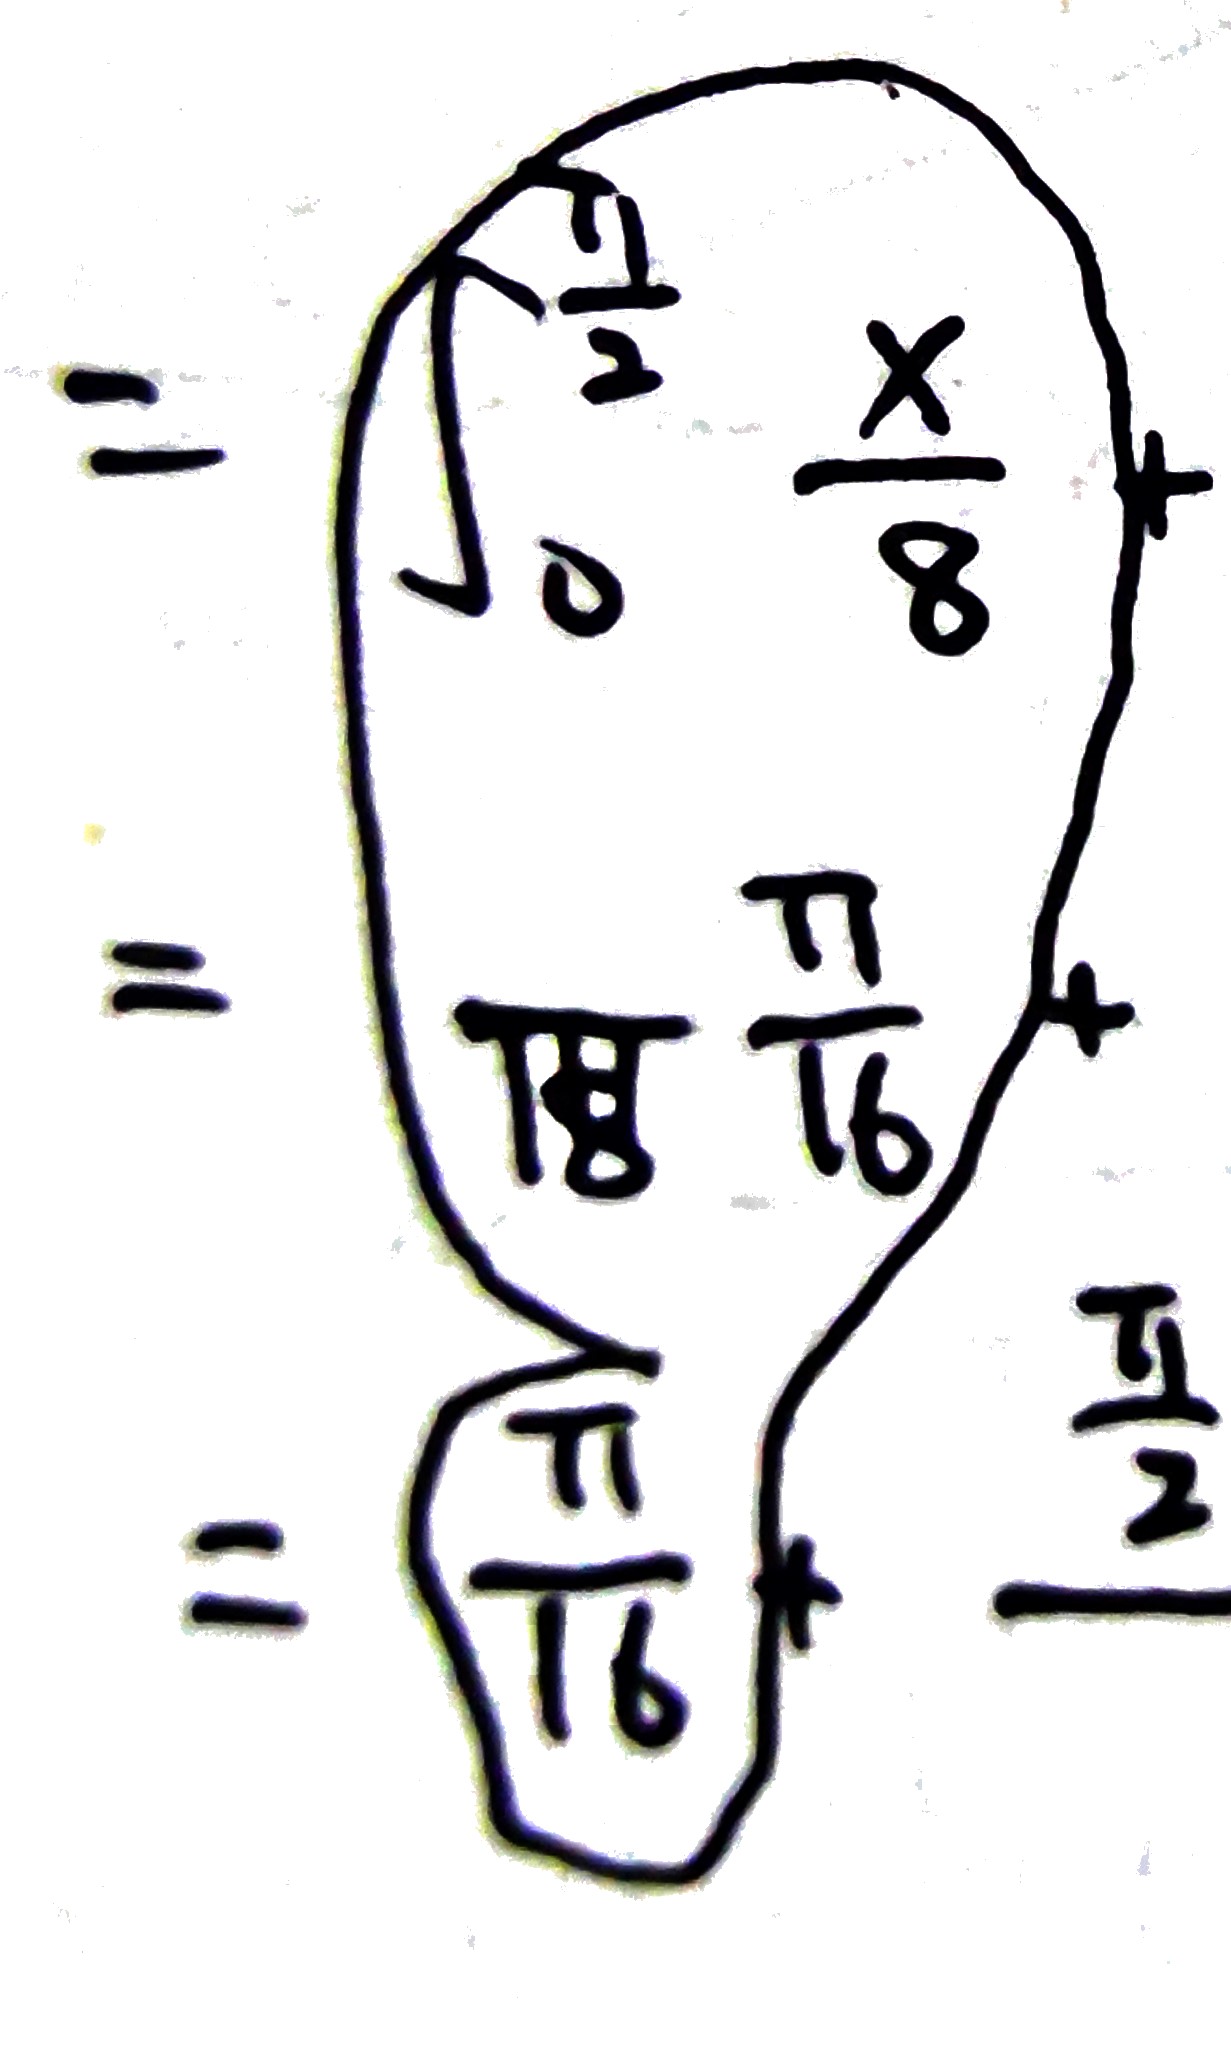 = ∫₀^(π/2) x/8 +
= π/16 +
= π/16 + π/2